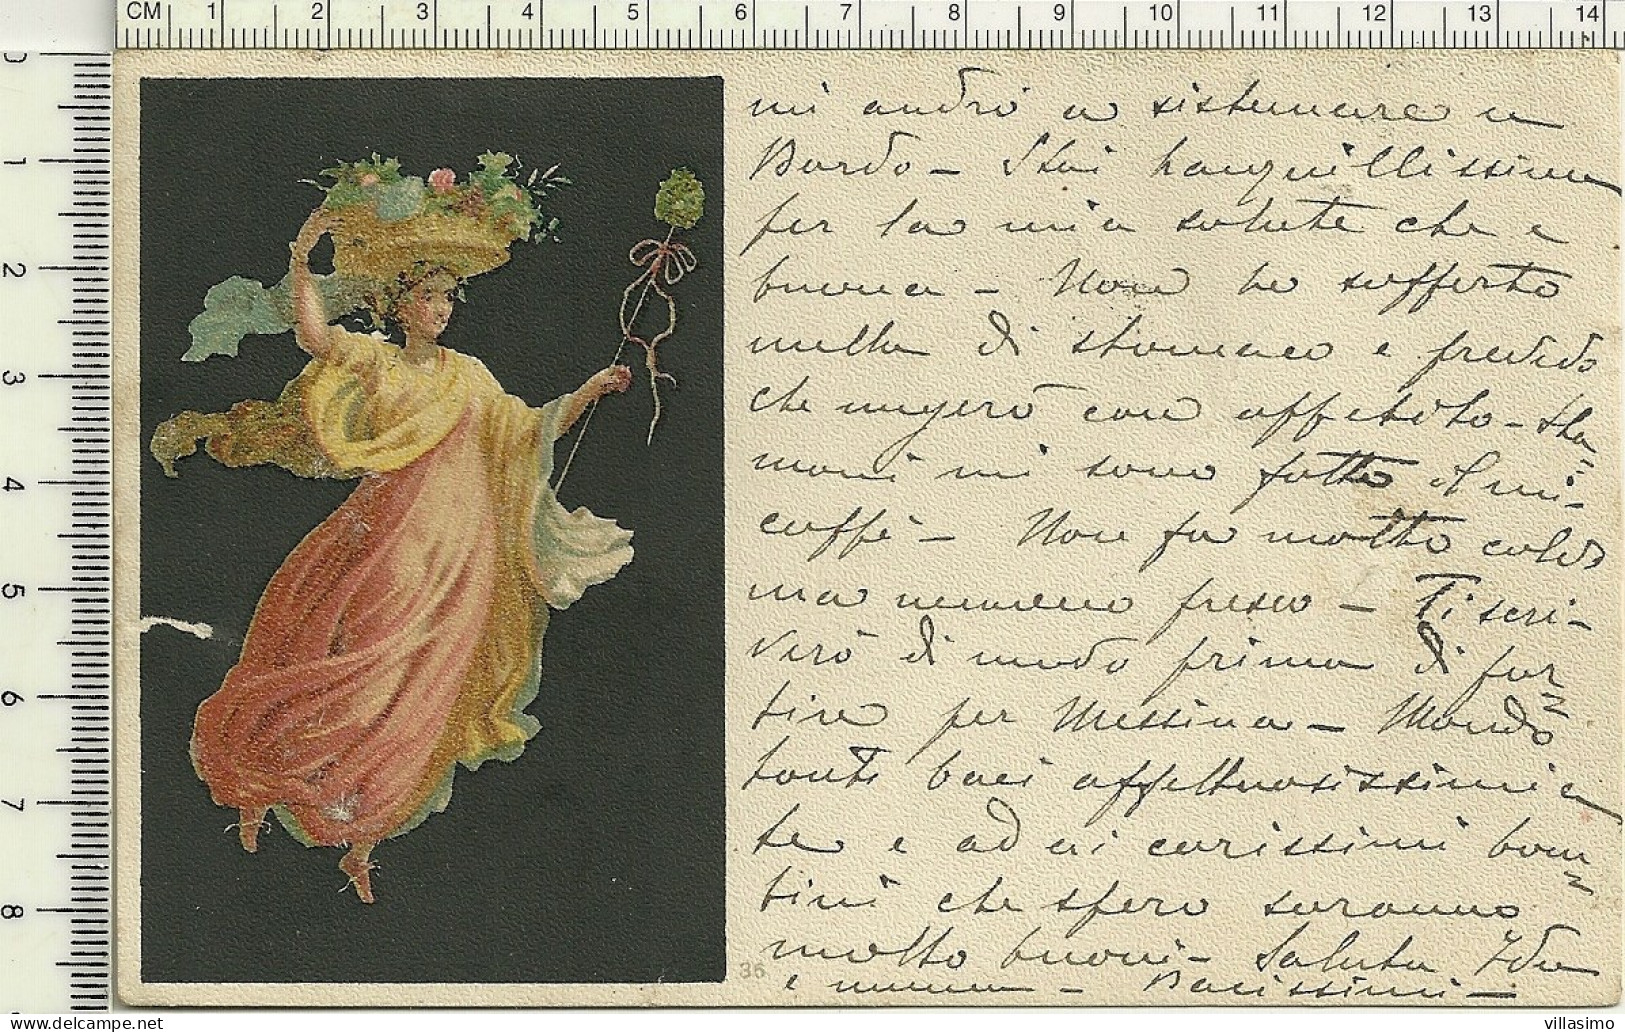 CM 1 2 3 4 5 6 7 8 9 10 11 12 13 14
0 1 2 3 4 5 6 7 8
mi andrò a sistemare a
Bordo - Stai tranquillissima
per la mia salute che è
buona - Non ho sofferto
nulla di stomaco e
che con Sta-
mani mi sono fatto il mi-
caffè - Non fa molto caldo
ma nemmeno fresco - Ti scri-
verò di modo prima di par-
tire per Messina - Mando
tanti baci affettuosissimi a
te e ad ai carissimi bam-
bini che spero saranno
molto buoni - Saluta Ida
e mamma - Bacissimi -
36
villasimo